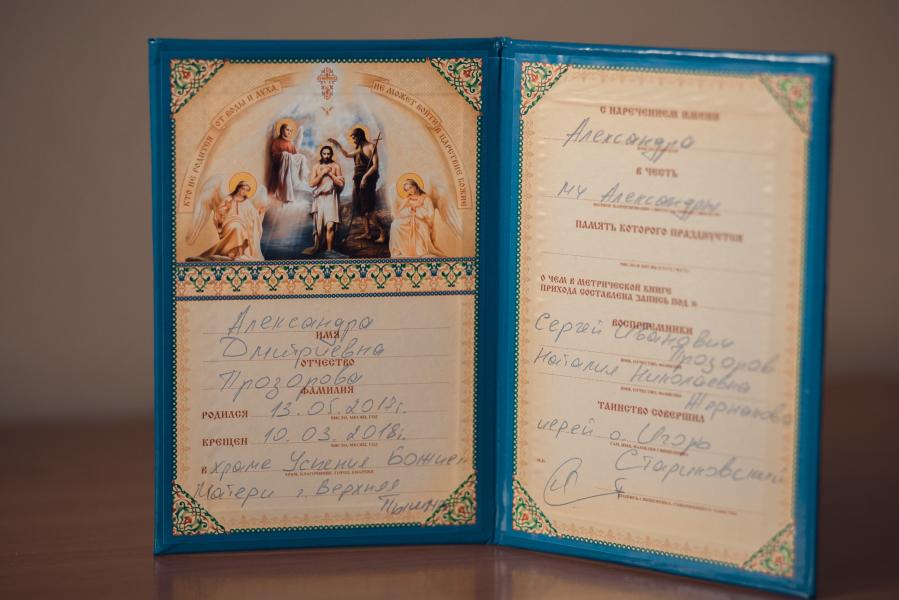 КТО НЕ РОДИТСЯ ОТ ВОДЫ И ДУХА, НЕ МОЖЕТ ВОЙТИ В ЦАРСТВИЕ БОЖИЕ
Александра
ИМЯ
Дмитриевна
ОТЧЕСТВО
Прозорова
ФАМИЛИЯ
РОДИЛСЯ 13.05.2017г.
ЧИСЛО, МЕСЯЦ, ГОД
КРЕЩЕН 10.03.2018г.
ЧИСЛО, МЕСЯЦ, ГОД
В храме Успения Божией
Матери г. Верхняя
Пышма
С НАРЕЧЕНИЕМ ИМЕНИ
Александра
В ЧЕСТЬ
мч Александры
ПАМЯТЬ КОТОРОГО ПРАЗДНУЕТСЯ
О ЧЕМ В МЕТРИЧЕСКОЙ КНИГЕ
ПРИХОДА СОСТАВЛЕНА ЗАПИСЬ ПОД №
ВОСПРИЕМНИКИ
Сергей Иванович
Прозоров
ИМЯ, ОТЧЕСТВО, ФАМИЛИЯ
Наталия Николаевна
ИМЯ, ОТЧЕСТВО, ФАМИЛИЯ
Жернакова
ТАИНСТВО СОВЕРШИЛ
иерей о. Игорь
Стариковский
М.П.